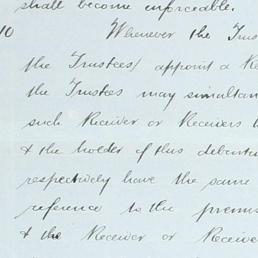 shall become enforceable.
10 Whenever the Trus
the Trustees/ appoint a Re
the Trustees may simultan
such Receiver or Receivers t
& the holder of this debentu
respectively have the same
reference to the premis
& the Receiver or Receive